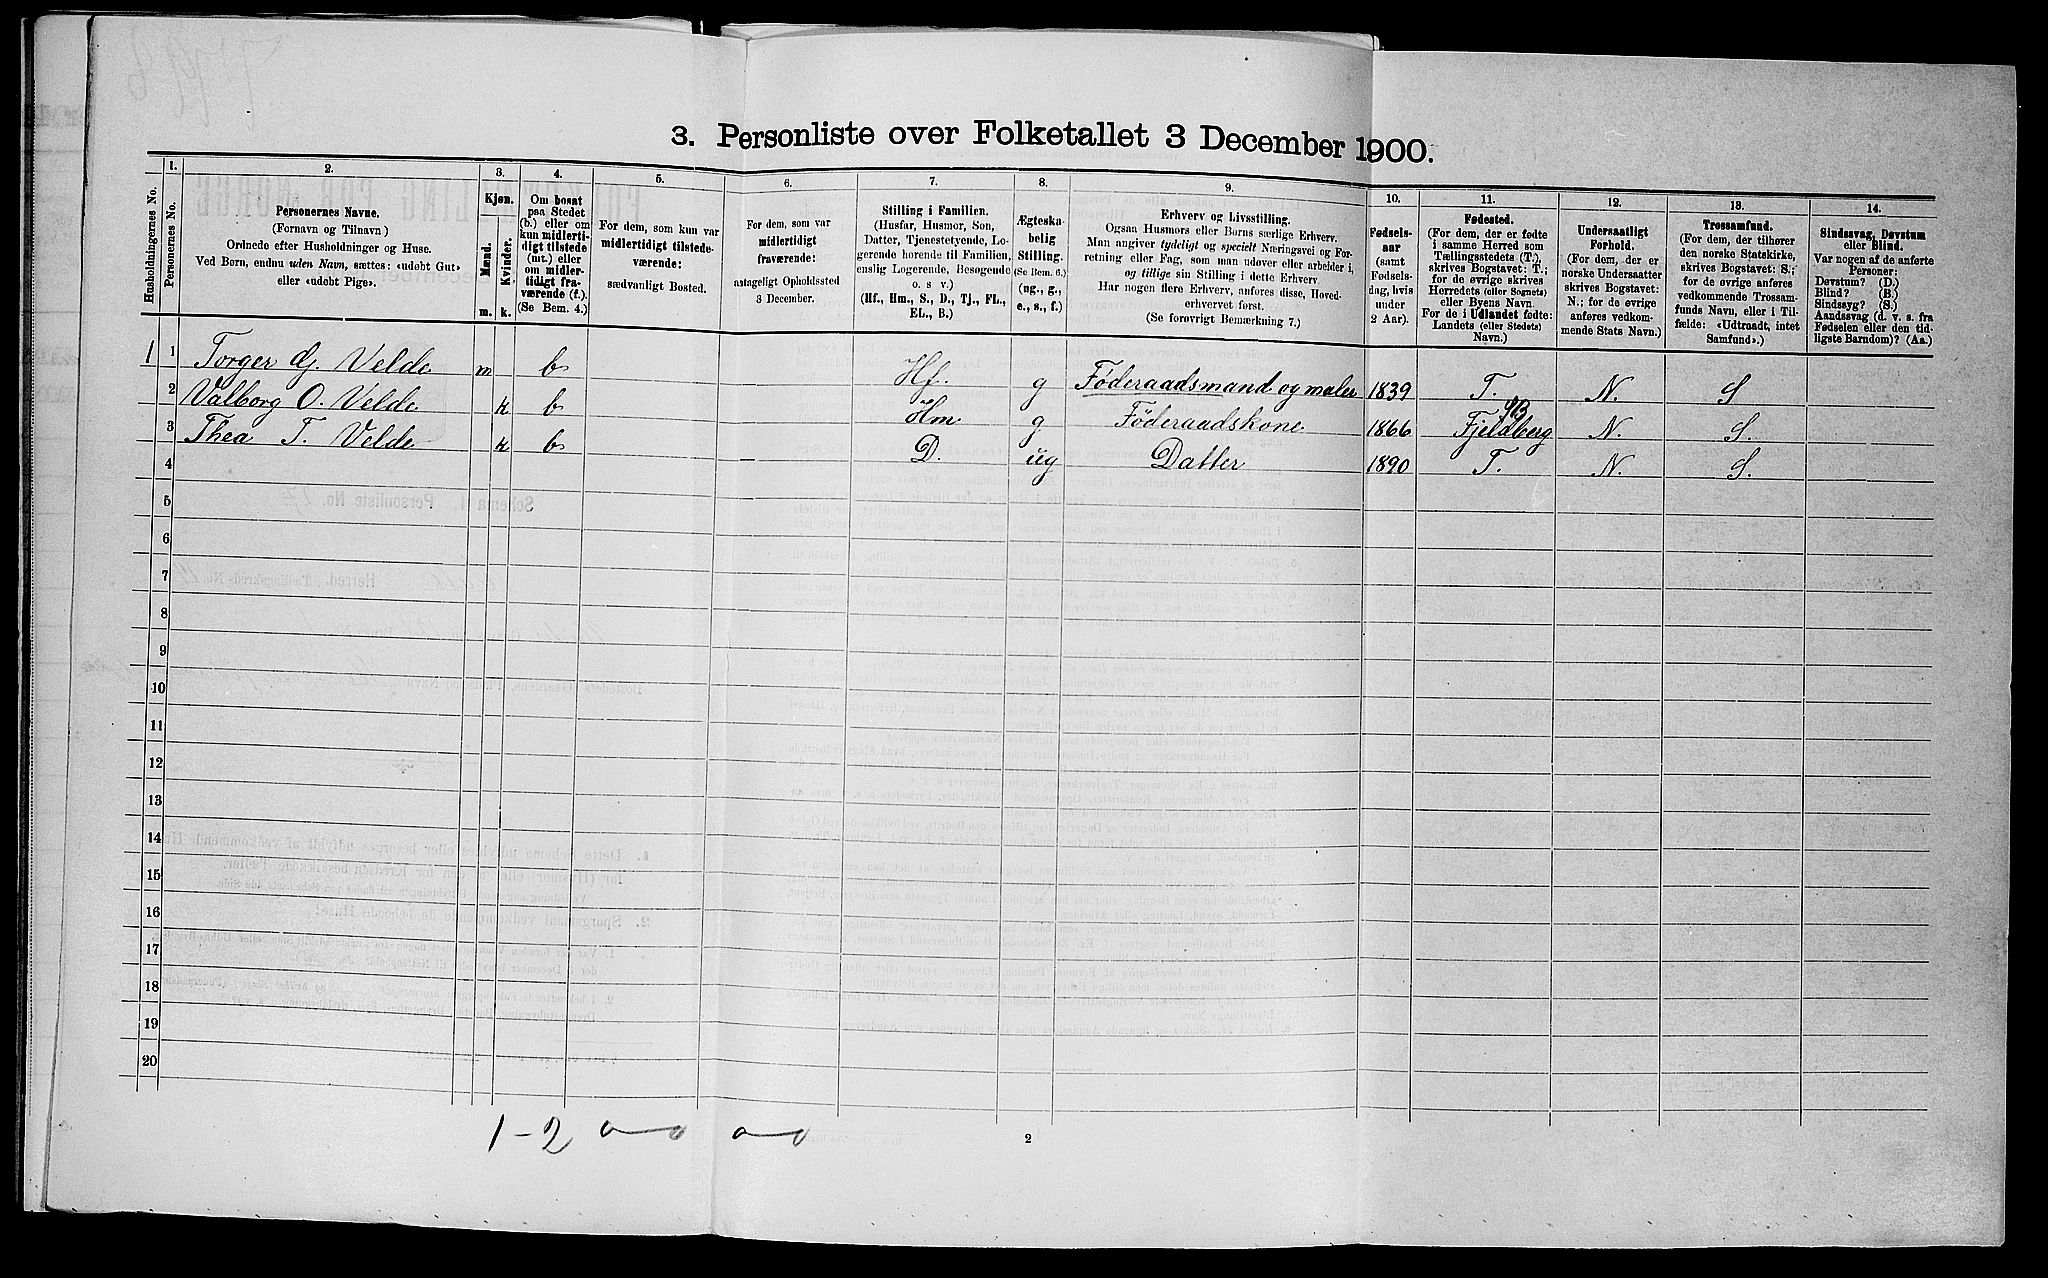 3. Personliste over Folketallet 3 December 1900.
1. 2. 3. 4. 5. 6. 7. 8. 9. 10. 11. 12. 13. 14.
Husholdningernes No.
Personernes No.
Personernes Navne.
(Fornavn og Tilnavn)
Ordnede efter Husholdninger og Huse.
Ved Børn, endnu uden Navn, sættes: «udøbt Gut»
eller «udøbt Pige».
Kjøn.
Mænd.
Kvinder.
m. k.
Om bosat
paa Stedet
(b.) eller om
kun midler-
tidigt tilstede
(mt.) eller
om midler-
tidigt fra-
værende (f.).
(Se Bem. 4.)
For dem, som kun var
midlertidigt tilstede-
værende:
sædvanligt Bosted.
For dem, som var
midlertidigt
fraværende:
antageligt Opholdssted
3 December.
Stilling i Familien.
(Husfar, Husmor, Søn,
Datter, Tjenestetyende, Lo-
gerende hørende til Familien,
enslig Logerende, Besøgende
o. s v.)
(Hf., Hm., S., D., Tj., FL.,
EL., B.)
Ægteska-
belig
Stilling.
(Se Bem. 6.)
(ug., g.,
e., s., f.)
Erhverv og Livsstilling.
Ogsaa Husmors eller Børns særlige Erhverv.
Man angiver tydeligt og specielt Næringsvei og For-
retning eller Fag, som man udøver eller arbeider i,
og tillige sin Stilling i dette Erhverv
Har nogen flere Erhverv, anføres disse, Hoved-
erhvervet først.
(Se forøvrigt Bemærkning 7.)
Fødsels-
aar
(samt
Fødsels-
dag, hvis
under
2 Aar).
Fødested.
(For dem, der er fødte
i samme Herred som
Tællingsstedets (T.),
skrives Bogstavet: T.;
for de øvrige skrives
Herredets (eller Sognets)
eller Byens Navn.
For de i Udlandet fødte:
Landets (eller Stedets)
Navn.)
Undersaatligt
Forhold.
(For dem, der er
norske Undersaatter
skrives Bogstavet:
N.; for de øvrige
anføres vedkom-
mende Stats Navn.)
Trossamfund.
(For dem, der tilhører
den norske Statskirke,
skrives Bogstavet: S.;
for de øvrige anføres
vedkommende Trossam-
funds Navn, eller i Til-
fælde: «Udtraadt, intet
Samfund».)
Sindssvag, Døvstum
eller Blind.
Var nogen af de anførte
Personer:
Døvstum? (D.)
Blind? (B.)
Sindssyg? (S.)
Aandssvag (d. v. s. fra
Fødselen eller den tid-
ligste Barndom)? (Aa.)
1 1 Torger G. Velde m b Hf. g Föderaadsmand og maler 1839 T. N. S
2 Valborg O. Velde k b Hm g Föderaadskone 1866 Fjeldberg N. S.
3 Thea T. Velde k b D. ug Datter 1890 T. N. S.
4
5
6
7
8
9
10
11
12
13
14
15
16
17
18
19
20
1-2
2